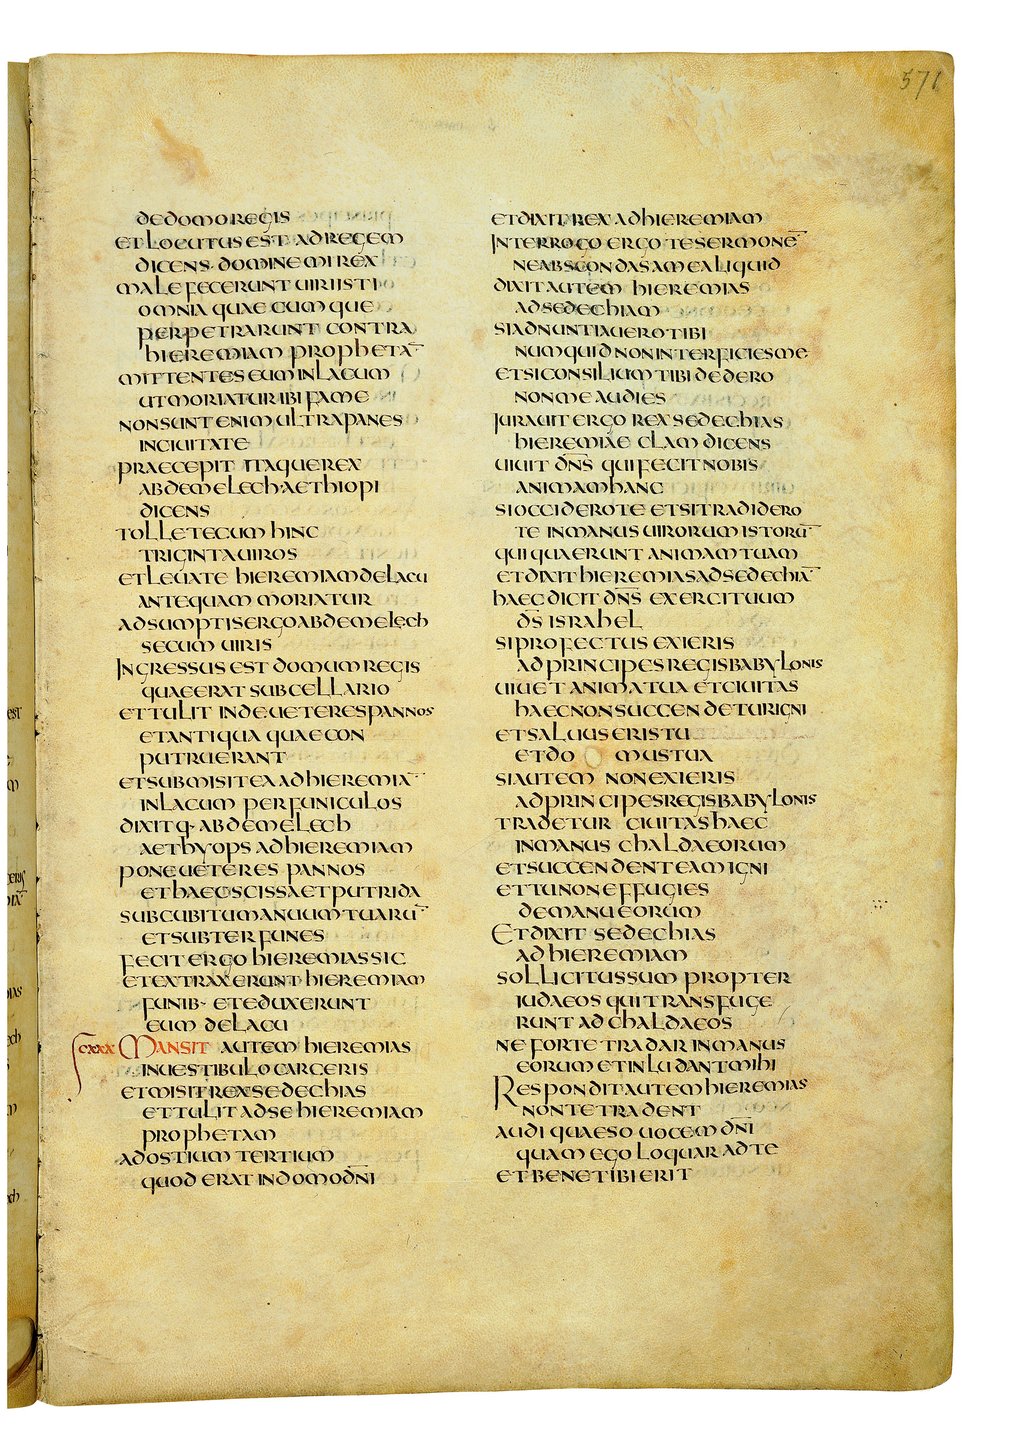 571
de domo regis
et locutus est ad regem
dicens domine mi rex
male fecerunt uiri isti
omnia quaecumque
perpetrarunt contra
hieremiam propheta̅
mittentes eum in lacum
ut moriatur ibi fame
non sunt enim ultra panes
in ciuitate
praecepit itaque rex
abdemelech aethiopi
dicens
tolle tecum hinc
triginta uiros
et leuate hieremiam de lacu
antequam moriatur
adsumptis ergo abdemelech
secum uiris
ingressus est domum regis
quae erat sub cellario
et tulit inde ueteres pannos
et antiqua quae con
putruerant
et submisit ea ad hieremia̅
in lacum per funiculos
dixitq· abdemelech
aethyops ad hieremiam
pone ueteres pannos
et haec scissa et putrida
sub cubitu manuum tuaru̅
et subter funes
fecit ergo hieremias sic
et extraxerunt hieremiam
funib· et eduxerunt
eum de lacu
cxxx Mansit autem hieremias
in uestibulo carceris
et misit rex sedechias
et tulit ad se hieremiam
prophetam
ad ostium tertium
quod erat in domo dn̅i
et dixit rex ad hieremiam
interrogo ergo te sermone̅
ne abscondas a me aliquid
dixit autem hieremias
ad sedechiam
si adnuntiauero tibi
numquid non interficies me
et si consilium tibi dedero
non me audies
iurauit ergo rex sedechias
hieremiae clam dicens
uiuit dn̅s qui fecit nobis
animam hanc
si occidero te et si tradidero
te in manus uirorum istoru̅
qui quaerunt animam tuam
et dixit hieremias ad sedechia̅
haec dicit dn̅s exercituum
ds̅ israhel
si profectus exieris
ad principes regis babylonis
uiuet anima tua et ciuitas
haec non succendetur igni
et saluus eris tu
et domus tua
si autem non exieris
ad principes regis babylonis
tradetur ciuitas haec
in manus chaldaeorum
et succendent eam igni
et tu non effugies
de manu eorum
Et dixit sedechias
ad hieremiam
sollicitus sum propter
iudaeos qui transfuge
runt ad chaldaeos
ne forte tradar in manus
eorum et inludant mihi
Respondit autem hieremias
non te tradent
audi quaeso uocem dn̅i
quam ego loquar ad te
et bene tibi erit